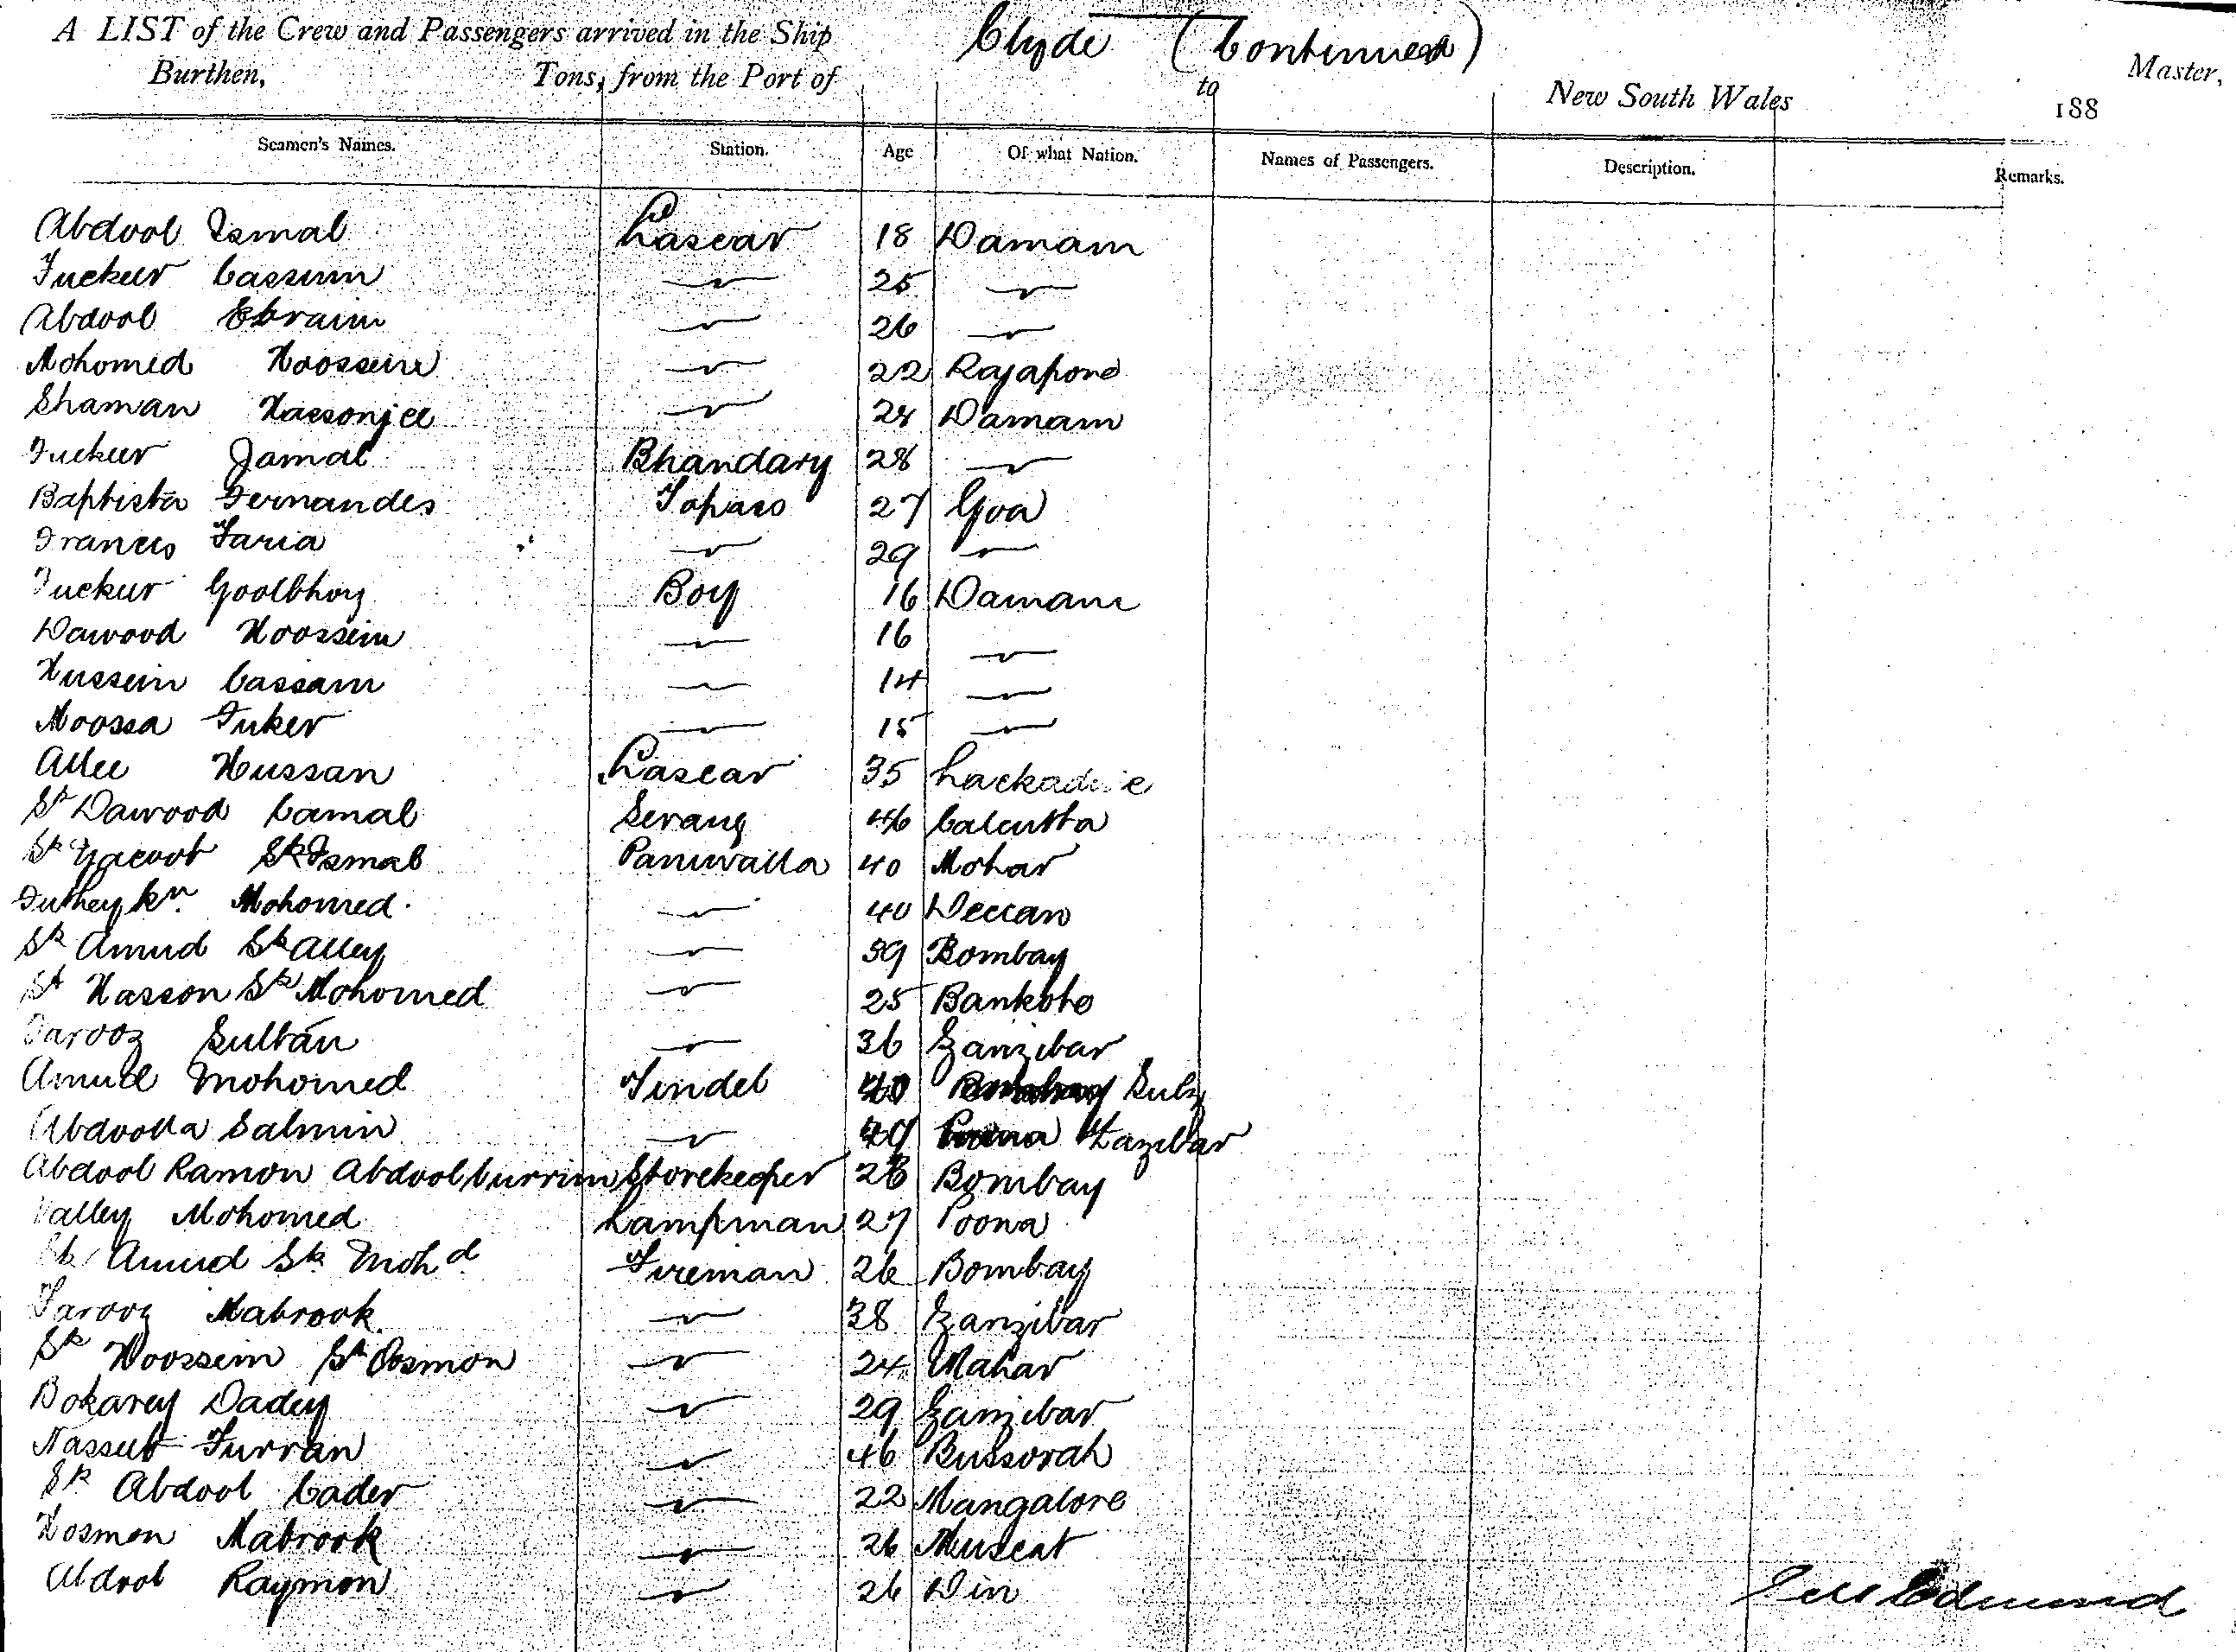 A LIST of the Crew and Passengers arrived in the Ship Clyde (Continued) Master,
Burthen, Tons, from the Port of to New South Wales 188
Seamen's Names. Station. Age Of what Nation. Names of Passengers. Description. Remarks.
Abdool Ismal Lascar 18 Damam
Fuckur Cassum 〃 25 〃
Abdool Ebraim 〃 26 〃
Mohomed Hoossein 〃 22 Rajapore
Shaman Hassonjee 〃 24 Damam
Fuckur Jamal Bhandary 28 〃
Baptista Fernandes Topass 27 Goa
Francis Faria 〃 29 〃
Fuckur Goolbhoy Boy 16 Damam
Dawood Hoossein 〃 16 〃
Hussein Cassam 〃 14 〃
Moossa Fuker 〃 15 〃
Allee Hussan Lascar 35
Sk Dawood Camal Serang 46 Calcutta
Sk Yacoob Sk Ismal Paniwalla 40 Mohar
Futhey Kn. Mohomed 〃 40 Deccan
Sk Amud Sk Alley 〃 39 Bombay
Sk Hasson Sk Mohomed 〃 25 Bankote
Farooz Sultan 〃 36 Zanzibar
Amud Mohomed Tindel 40
Abdoola Salmin 〃 Zazibar
Abdool Ramon Abdool Currim Storekeeper 28 Bombay
Valley Mohomed Lampman 27 Poona
Sk Amud Sk Mohd Fireman 26 Bombay
Farooz Mabrook 〃 38 Zanzibar
Sk Hoossein Sk Oosmon 〃 24 Mahar
Bokarey Dadey 〃 29 Zanzibar
Nassub Furran 〃 46 Bussorah
Sk Abdool Cader 〃 22 Mangalore
Hosmon Mabrook 〃 26 Muscat
Abdool Raymon 〃 26 Diu
Edmund